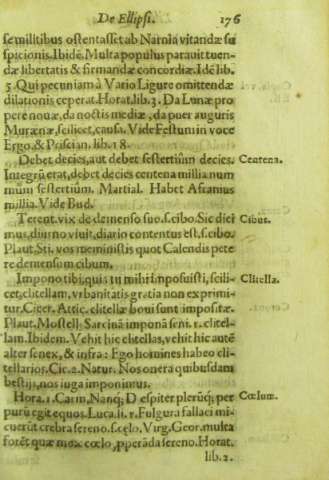 De Ellipsi. 176
se militibus ostentasset ab Narnia vitandæ su
spicionis. Ibidē. Multa populus parauit tuen-
dæ libertatis & firmandæ concordiæ. Idē lib.
5. Qui pecuniam à Vario Ligure omittendæ
dilationis ceperat. Horat. lib. 3. Da Lunæ pro
pere nouæ, da noctis mediæ, da puer auguris
Murænæ, scilicet, causa. Vide Festum in voce
Ergo. & Priscian. lib. 18.
Debet decies, aut debet sestertiūm decies. Centena.
Integrū erat, debet decies centena millia num
mūm sestertiūm. Martial. Habet Aframus
millia. Vide Bud.
Terent. vix de demenso suo. s. cibo. Sic dici Cibus.
mus, diurno viuit, diario contentus est, s. cibo.
Plaut. Sti. vos meministis quot Calendis pete
re demensum cibum.
Impono tibi, quis tu mihi imposuisti, scili- Clitella.
cet, clitellam, vrbanitatis gratia non exprimi
tur, Cicer. Attic. clitellæ boui sunt impositæ.
Plaut. Mostell. Sarcinā imponā seni. r. clitel-
lam. Ibidem. Vehit hic clitellas, vehit hic autē
alter senex, & infra: Ego homines habeo cli-
tellarios. Cic. 2. Natur. Nos onera quibusdam
bestijs, nos iuga imponimus.
Hora. 1. Carm. Nanq; Diespiter plerūq; per Cœlum.
purū egit equos. Luca. li. 1. Fulgura fallaci mi-
cuerūt crebra sereno. s. cęlo. Virg. Geor. multa
forēt quæ mox cœlo, pperāda sereno. Horat.
lib. 2.